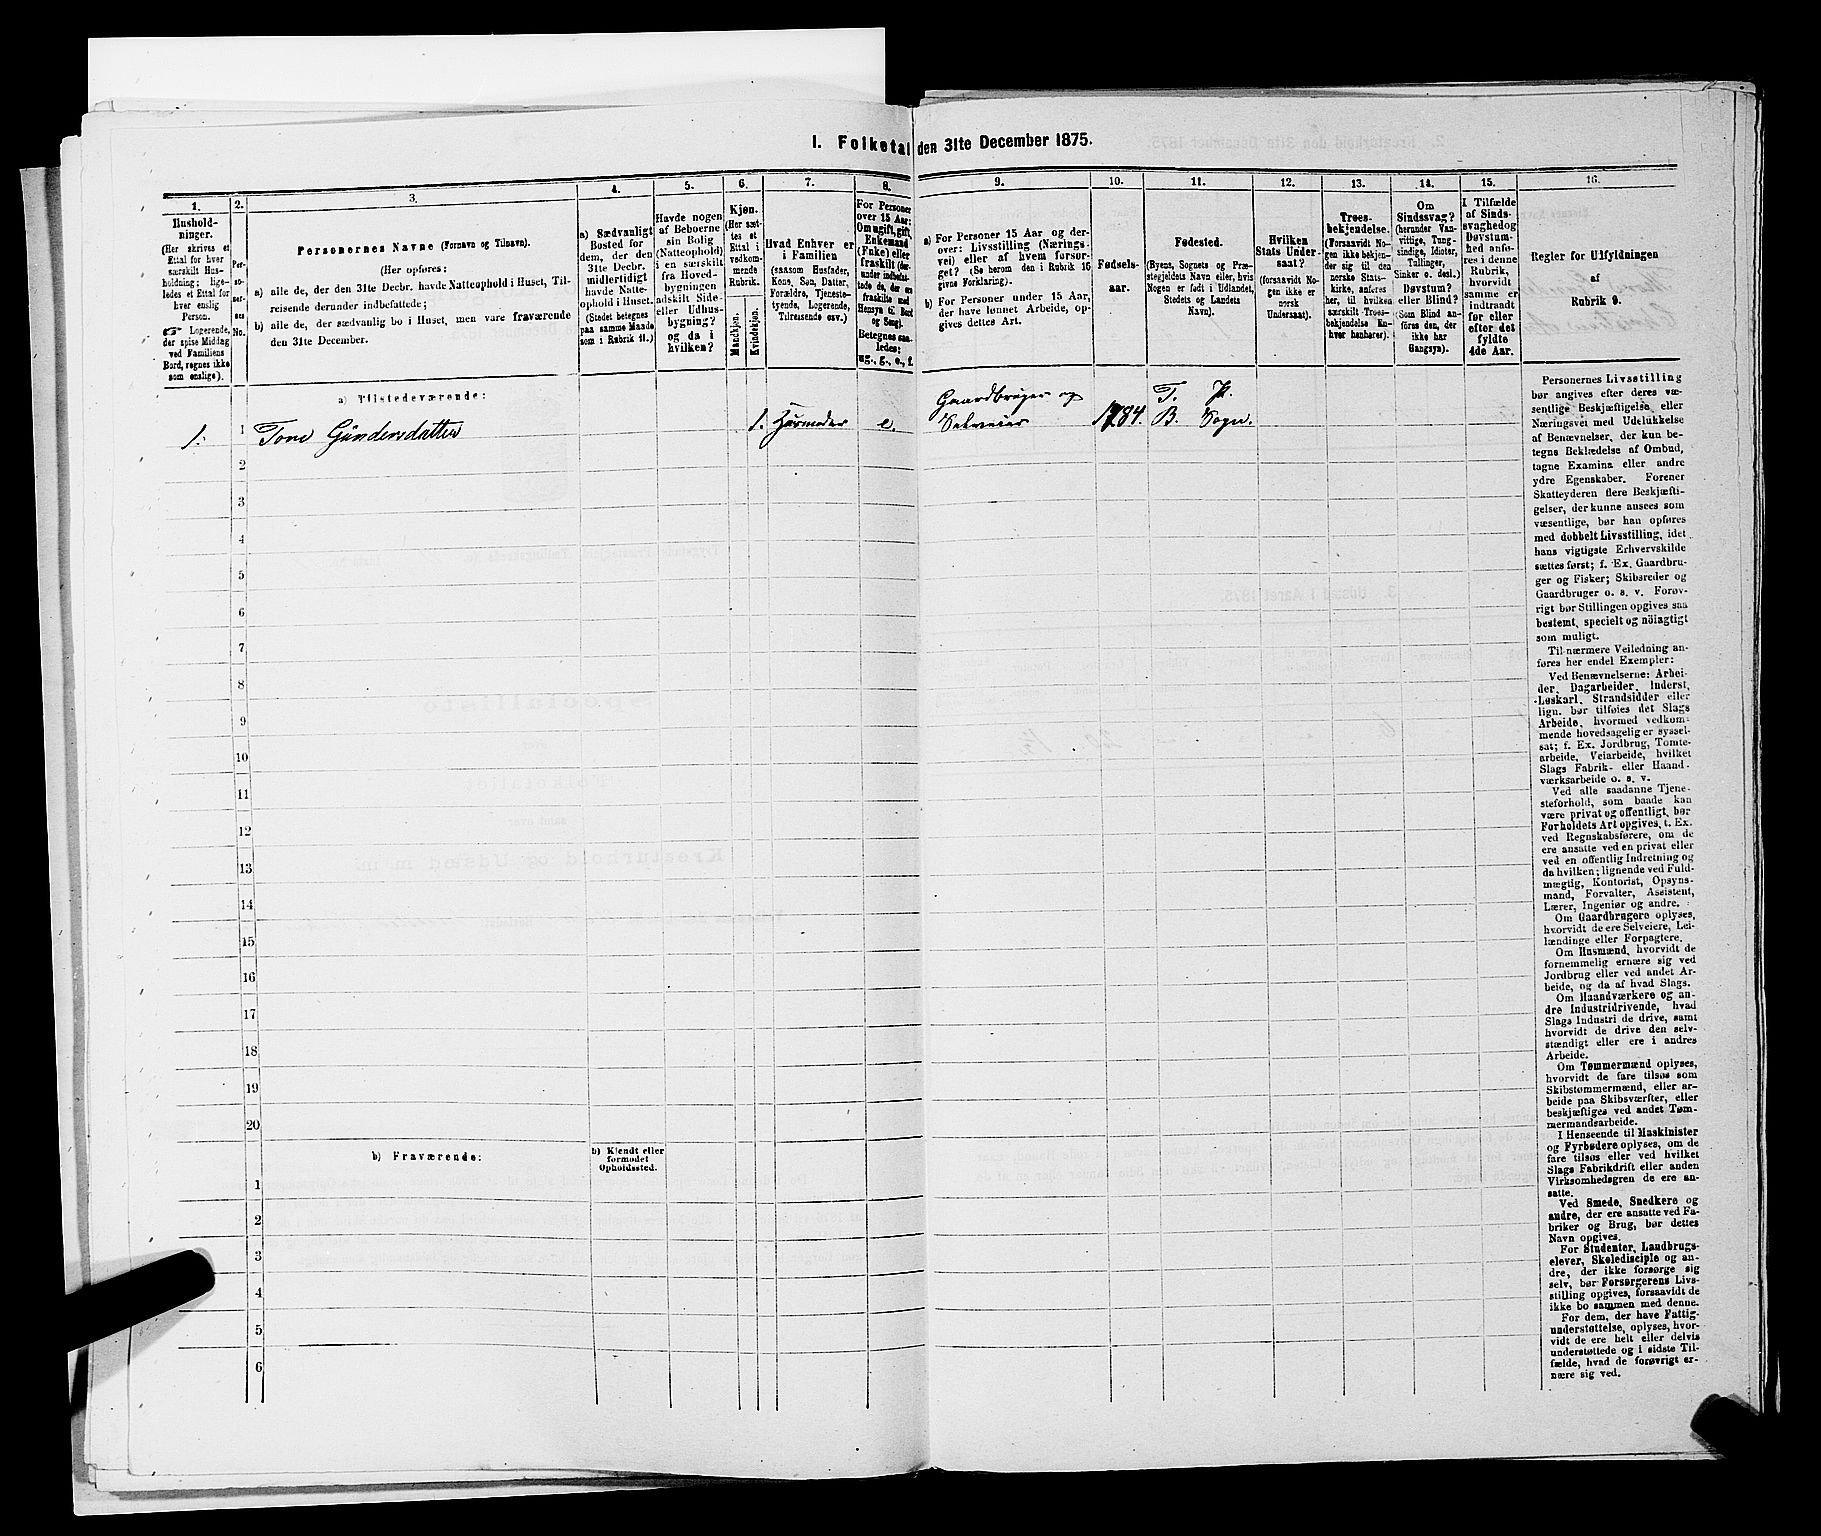 I. Folketal den 31te December 1875.
1.
Hushold-
ninger.
(Her skrives et
Ettal for hver
særskilt Hus-
holdning; lige-
ledes et Ettal for
hver enslig
Person.
Logerende,
der spise Middag
ved Familiens
Bord, regnes ikke
som enslige).
2.
Per-
so-
ner-
nes
No.
3.
Personernes Navne (Fornavn og Tilnavn).
(Her opføres:
a) alle de, der den 31te Decbr. havde Natteophold i Huset, Til-
reisende derunder indbefattede;
b) alle de, der sædvanlig bo i Huset, men vare fraværende
den 31te December.
4.
a) Sædvanligt
Bosted for
dem, der den
31te Decbr.
midlertidigt
havde Natte-
ophold i Huset.
(Stedet betegnes
paa samme Maade
som i Rubrik 11.)
5.
Havde nogen
af Beboerne
sin Bolig
(Natteophold)
i en særskilt
fra Hoved-
bygningen
adskilt Side-
eller Udhus-
bygning?
og da i
hvilken?
6.
Kjøn.
(Her sæt-
tes et
Ettal i
vedkom-
mende
Rubrik.
Mandkjøn.
Kvindekjøn.
7.
Hvad Enhver er
i Familien
(saasom Husfader,
Kone, Søn, Datter,
Forældre, Tjeneste-
tyende, Logerende,
Tilreisende osv.)
8.
For Personer
over 15 Aar:
Om ugift, gift,
Enkemand
(Enke) eller
fraskilt (der-
under indbefat-
tede de, der ere
fraskilte med
Hensyn til Bord
og Seng).
Betegnes saa-
ledes:
ug., g., e., f.
9.
a) For Personer 15 Aar og der-
over: Livsstilling (Nærings-
vei) eller af hvem forsør-
get? (Se herom den i Rubrik 16
givne Forklaring).
b) For Personer under 15 Aar,
der have lønnet Arbeide, op-
gives dettes Art.
10.
Fødsels-
aar.
11.
Fødested.
(Byens, Sognets og Præ-
stegjeldets Navn eller, hvis
Nogen er født i Udlandet,
Stedets og Landets
Navn).
12.
Hvilken
Stats Under-
saat?
(forsaavidt No-
gen ikke er
norsk
Undersaat).
13.
Troes-
bekjendelse.
(Forsaavidt No-
gen ikke bekjen-
der sig til den
norske Stats-
kirke, anføres
her, til hvilken
særskilt Troes-
bekjendelse En-
hver henhører).
14.
Om
Sindssvag?
(herunder Van-
vittige, Tung-
sindige, Idioter,
Tullinger,
Sinker o. desl.)
Døvstum?
eller Blind?
(Som Blind an-
føres den, der
ikke har
Gangsyn).
15.
I Tilfælde
af Sinds-
svaghed og
Døvstum-
hed anfø-
res i denne
Rubrik,
hvorvidt
samme er
indtraadt
før eller
efter det
fyldte
4de Aar.
16.
Regler for Udfyldningen
af
Rubrik 9.
a) Tilstedeværende:
1. 1 Tone Gundersdatter 1. Husmoder e. Gaardbruger og Selveier 1784. T. P. B. Sogn.
2
3
4
5
6
7
8
9
10
11
12
13
14
15
16
17
18
19
20
b) Fraværende:
b) Kjendt eller
formodet
Opholdssted.
1
2
3
4
5
6
Personernes Livsstilling
bør angives efter deres væ-
sentlige Beskjæftigelse eller
Næringsvei med Udelukkelse
af Benævnelser, der kun be-
tegne Beklædelse af Ombud,
tagne Examina eller andre
ydre Egenskaber. Forener
Skatteyderen flere Beskjæfti-
gelser, der kunne ansees som
væsentlige, bør han opføres
med dobbelt Livsstilling, idet
hans vigtigste Erhvervskilde
sættes først; f. Ex. Gaardbru-
ger og Fisker; Skibsreder og
Gaardbruger o. s. v. Forøv-
rigt bør Stillingen opgives saa
bestemt, specielt og nöiagtigt
som muligt.
Til nærmere Veiledning an-
føres her endel Exempler:
Ved Benævnelserne: Arbei-
der, Dagarbeider, Inderst,
Løskarl, Strandsidder eller
lign. bør tilføies det Slags
Arbeide, hvormed vedkom-
mende hovedsagelig er syssel-
sat; f. Ex. Jordbrug, Tomte-
arbeide, Veiarbeide, hvilket
Slags Fabrik- eller Haand-
værksarbeide o. s. v.
Ved alle saadanne Tjene-
steforhold, som baade kan
være privat og offentligt, bør
Forholdets Art opgives, t. Ex.
ved Regnskabsførere, om de
ere ansatte ved en privat eller
ved en offentlig Indretning og
da hvilken; lignende ved Fuld-
mægtig, Kontorist, Opsyns-
mand, Forvalter, Assistent,
Lærer, Ingeniør og andre.
Om Gaardbrugere oplyses,
hvorvidt de ere Selveiere, Lei-
lændinge eller Forpagtere.
Om Husmænd, hvorvidt de
fornemmelig ernære sig ved
Jordbrug eller ved andet Ar-
beide, og da af hvad Slags.
Om Haandværkere og an-
dre Industridrivende, hvad
Slags Industri de drive, samt
hvorvidt de drive den selv-
stændigt eller ere i andres
Arbeide.
Om Tømmermænd oplyses,
hvorvidt de fare tilsøs som
Skibstømmermænd, eller ar-
beide paa Skibsværfter, eller
beskjæftiges ved andet Tøm-
mermandsarbeide.
I Henseende til Maskinister
og Fyrbødere oplyses, om de
fare tilsøs eller ved hvilket
Slags Fabrikdrift eller anden
Virksomhedsgren de ere an-
satte.
Ved Smede, Snedkere og
andre, der ere ansatte ved Fa-
briker og Brug, bør dettes
Navn opgives.
For Studenter, Landbrugs-
elever, Skoledisciple og an-
dre, der ikke forsørge sig
selv, bør Forsørgerens Livs-
stilling opgives, forsaavidt de
ikke bo sammen med denne.
For dem, der have Fattig-
understøttelse, oplyses, hvor-
vidt de ere helt eller delvis
understøttede og i sidste Til-
fælde, hvad de forøvrigt er-
nære sig ved.